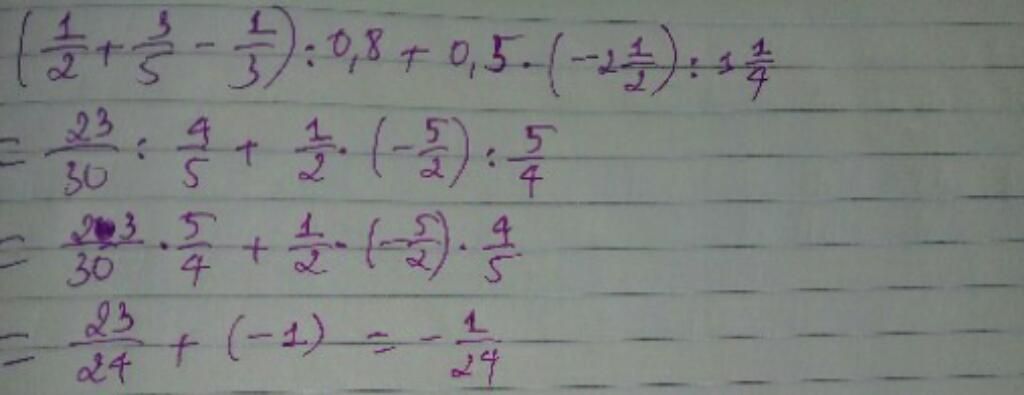 (1/2 + 3/5 - 1/3) : 0,8 + 0,5 . (-2 1/2) : 1 1/4
= 23/30 : 4/5 + 1/2 . (-5/2) : 5/4
= 23/30 . 5/4 + 1/2 . (-5/2) . 4/5
= 23/24 + (-1) = -1/24